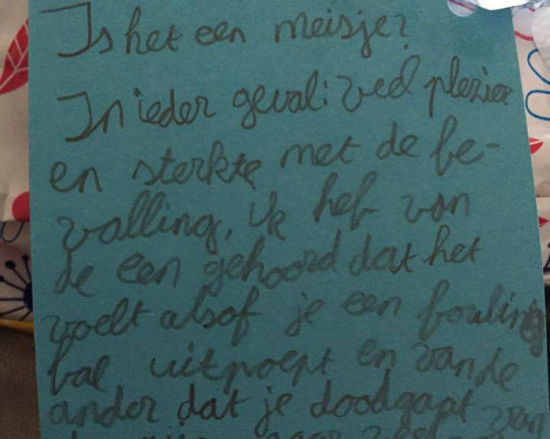 Is het een meisje?
In ieder geval: veel plezier
en sterkte met de be-
valling, ik heb van
de een gehoord dat het
voelt alsof je een bouling
bal uitpoept en van de
ander dat je doodgaat van